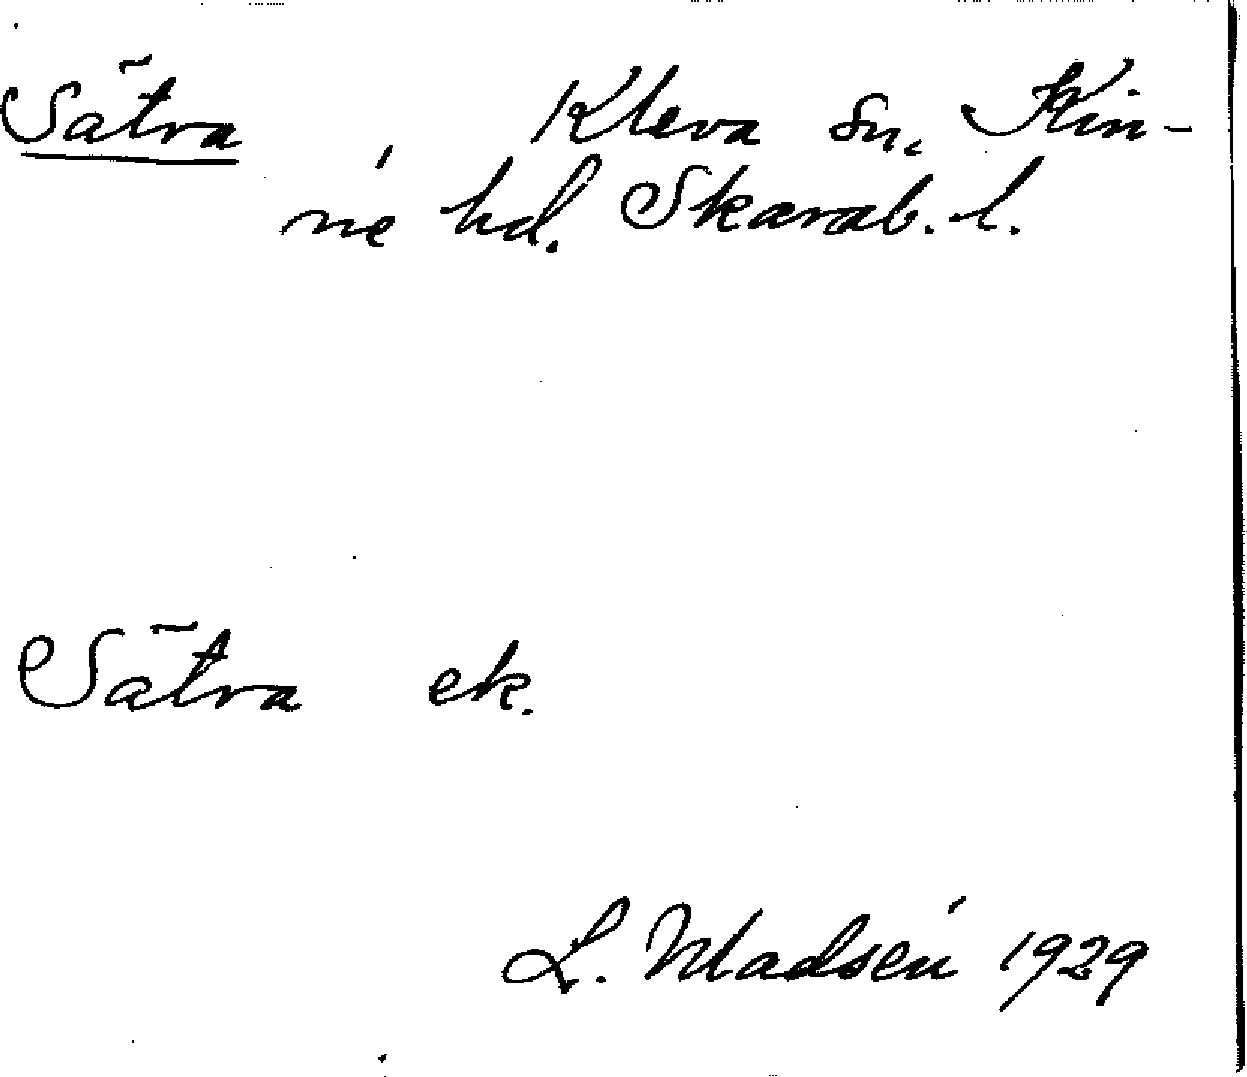 Sätra Kleva sn, Kin-
ne hd. Skarab. l.
Sätra ek.
L. Madsén 1929